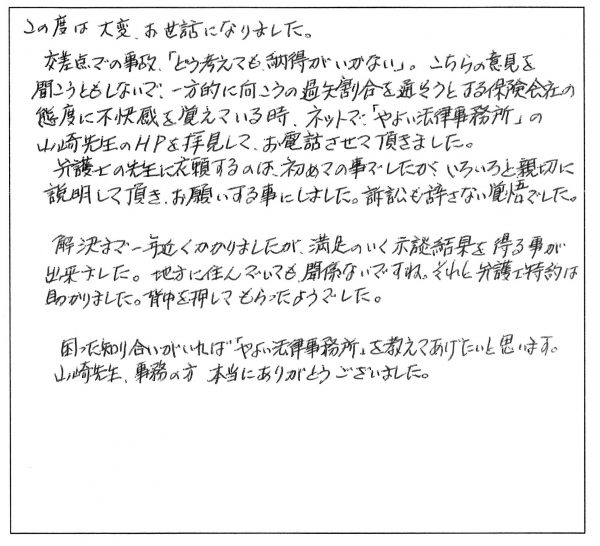 この度は大変、お世話になりました。
交差点での事故、「どう考えても、納得がいかない」。こちらの意見を
聞こうともしないで、一方的に向こうの過失割合を通そうとする保険会社の
態度に不快感を覚えている時、ネットで「やよい法律事務所」の
山﨑先生のHPを拝見して、お電話させて頂きました。
弁護士の先生に依頼するのは、初めての事でしたが、いろいろと親切に
説明して頂き、お願いする事にしました。訴訟も辞さない覚悟でした。
解決まで一年近くかかりましたが、満足のいく示談結果を得る事が
出来ました。地方に住んでいても、関係ないですね。それと弁護士特約は
助かりました。背中を押してもらったようでした。
困った知り合いがいれば「やよい法律事務所」を教えてあげたいと思います。
山﨑先生、事務の方 本当にありがとうございました。